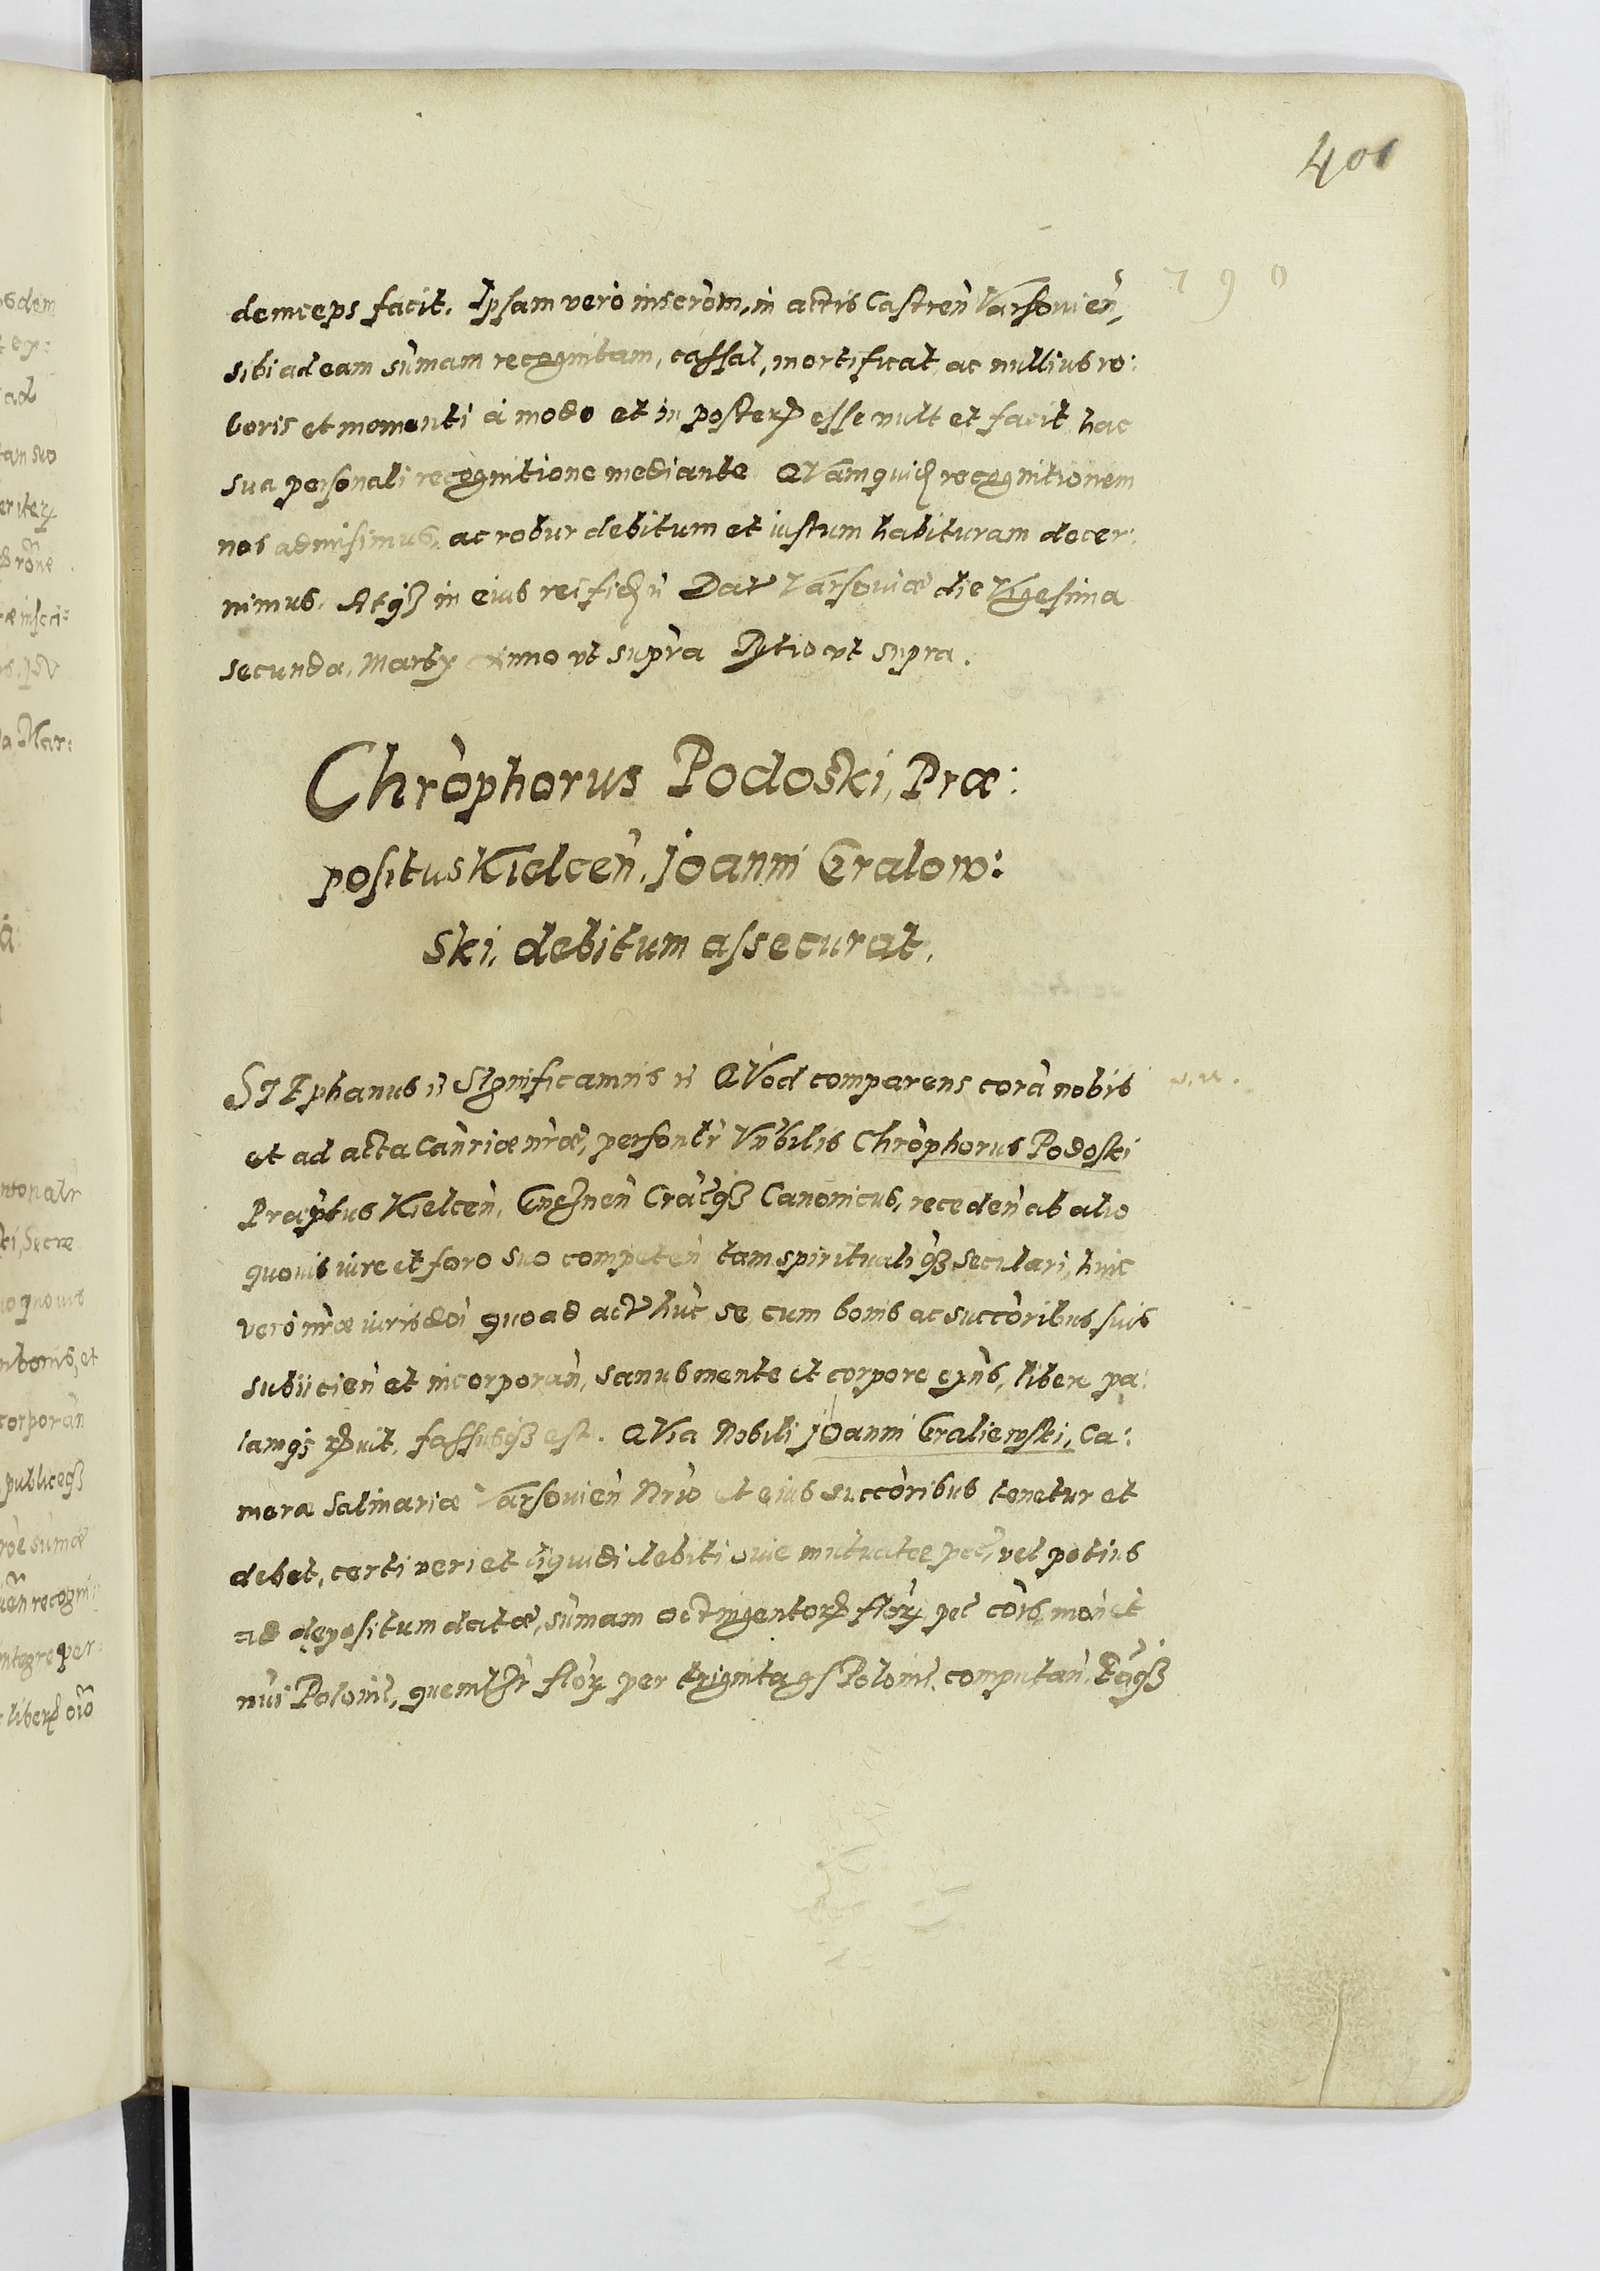 401
790
deinceps facit. Ipsam vero inscròm, in actis Castreǹ Varsovień,
sibi ad eam sum̀am recognitam, cassat, mortificat, ac nullius ro:
boris et momenti à modo et in posterꝝ esse vult et facit hac
sua personali recognitione mediante. QVam quid recognitionem
nos admisimus, ac robur debitum et iustum habituram decer:
nimus. Atqꝫ in eius rei fid ıı Dat Varsoviæ die Vigesima
secunda, Martÿ anno vt supra Rᵉtio vt supra.
Chròphorus Podoski, Præ:
positus Kielceǹ, Joanni Gralow:
ski, debitum assecurat.
STEphanus ıı SIgnificamus ıı QVod comparens corà nobis
s. u.
et ad acta Cańriæ nr̀æ, persoǹtr̀ Vǹbilis Chròphorus Podoski
Præp̀tus Kielceǹ, Gneznèn Crac̀qꝫ Canonicus, recedeǹ ab alio
quovis iure et foro suo competeǹ tam spirituali qꝫ seculari, huic
vero nr̀æ iurisdoi quoad act huc̀ se cum bonis ac succòribus suis
subiicieǹ et incorporàn, sanus mente et corpore exǹs, libere pa:
lamqꝫ rꝺvit, fassusqꝫ est. QVia Nobili Joanni Gralierski, Ca:
meræ Salinariæ Varsovieǹ Nr̀io et eius succòribus tenetur et
debet, certi veri et liquidi debiti sive mutuatæ pec̀, vel potius
ad depositum datæ, sum̀am octingentorꝝ flor̀ꝝ pec̀ còis, moǹet
nuı̀ Polonı̀c, quemlꝫt flo̍ꝝ per triginta gs Polonı̀c computaǹ. Eàqꝫ